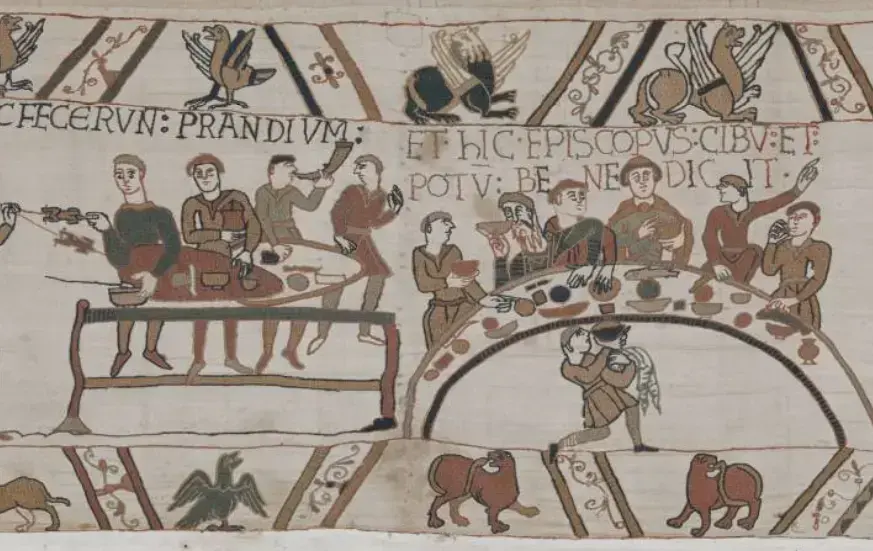 C FECERVN: PRANDIVM:
ET·hIC·EPISCOPVS:CIBV:ET:
POTV: BE NE DIC IT·